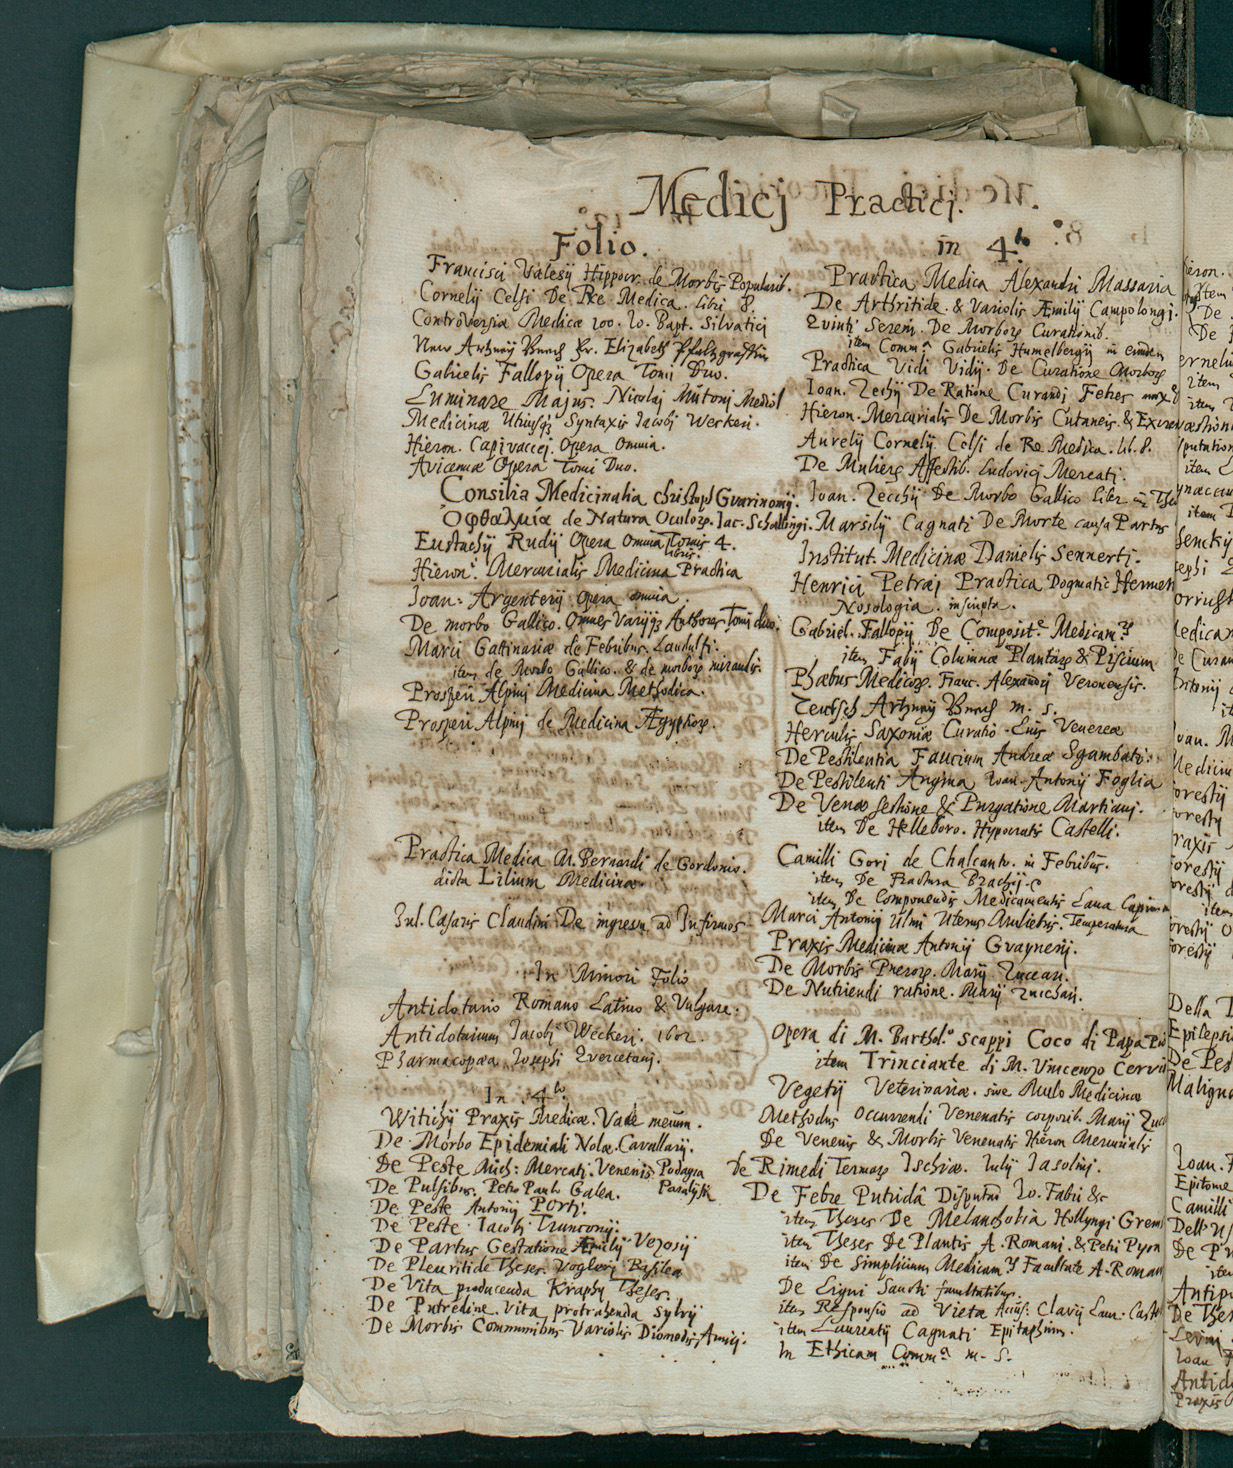 Medicj Practicj.
Folio.
Francisci Valesij Hippocr. de Morbis Popularib.
Cornelij Celsi De Re Medica. libri 8.
Controversiæ Medicæ 100. Io. Bapt. Silvatici
New Artzney Buech Fr. Elizabeth Pfaltzgräffin
Gabrielis Fallopij Opera Tomi Duo.
Luminare Majus. Nicolaj Mutonj Mediol
Medicinæ Utriusq; Syntaxis Iacobj Weckeri.
Hieron. Capivaccej. Opera Omnia.
Avicennæ Opera Tomi Duo.
Consilia Medicinalia Christoph Guarinonij.
Οφθαλμία de Natura Oculorum. Iac. Schallingi.
Eustachij Rudij Opera Omnia Tomis 4.
libris.
Hieron: Mercurialis Medicina Practica
Ioan: Argenterij opera omnia.
De morbo Gallico. Omnes Varijq; Authores Tomi duo.
Marci Gattinariæ de Febribus. Landulfi.
item de Morbo Gallico. & de morbis mirandis.
Prosperi Alpinj Medicina Methodica.
Prosperi Alpinij de Medicina Ægyptiorum.
Practica Medica M. Bernardi de Gordonio.
dicta Lilium Medicinæ.
Iul. Cæsaris Claudini De ingressu ad Infirmos
In Minori Folio
Antidotario Romano Latino & Vulgare.
Antidotarium Iacobi Weckeri. 1602.
Pharmacopæa Iosephi Quercetani.
In 4to.
Witichij Praxis Medicæ. Vade mecum.
De Morbo Epidemiali Nolæ. Cavallarij.
De Peste Mich: Mercati. Venenis Podagra
Paralysi
De Pulsibus. Petro Paulo Galea.
De Peste Antonij Portj.
De Peste Iacobi Trunconij.
De Partus Gestatione Æmilij Vezosij
De Pleuritide Theses. Voglerj Basilea
De Vita producenda Kraphy Theses.
De Putredine. Vita protrahenda Sylvij
De Morbis Communibus Variolis Diomedis Amicj.
in 4to.
Practica Medica Alexandri Massaria
De Arthritide. & Variolis Æmilij Campolongi.
Quinti Sereni. De Morborum Curationib.
item Comm. Gabrielis Humelbergij in eundem
Practica Vidi Vidij. De Curatione Morborum
Ioan. Zechij De Ratione Curandj Febres
Hieron. Mercurialis De Morbis Cutaneis. & Excrem
Aurelij Cornelij Celsi de Re Medica. lib. 8.
De Mulierum Affectib. Ludovicj Mercati.
Ioan. Zecchij De Morbo Gallico Liber
Marsilij Cagnati De Morte causa Partus
Institut. Medicinæ Danielis Sennerti.
Henrici Petræj Practica Dogmatic Hermet
Nosologia. inscripta.
Gabriel. Fallopij De Composite Medicam.
item Fabij Columnæ Plantarum & Piscium
Phæbus Medicorum. Franc. Alexandrj Veronensis.
Teutsch Artzney Buech m. s.
Herculis Saxoniæ Curatio Luis Venereæ
De Pestilentia Faucium Andreæ Sgambati.
De Pestilenti Angina Ioan. Antonij Foglia
De Venæ Sectione & Purgatione Martianj.
item De Helleboro. Hypocratis Castelli.
Camilli Gorj de Chalcanto. in Febribus.
item De Fractura Brachij.
item De Componendis Medicamentis Laua
Marci Antonij Ulmi Uterus Muliebris. Temperatura
Praxis Medicinæ Antonij Guaynerij.
De Morbis Puerorum. Marij Zuccari.
De Nutriendi ratione. Marij Zucchari.
Opera di M. Barthol. Scappi Coco di Papa Pio
item Trinciante di M. Vincenzo Cervio
Vegetij Veterinariæ. sive Mulo Medicinæ
Methodus Occurrendi Venenatis corporib. Marij Zucc
De Venenis & Morbis Venenatis Hieron Mercurialis
de Rimedi Termarum Ischiæ. Iulij Iasolini.
De Febre Putridâ Disputatio Io. Fabri &c
item Theses De Melancholia Hollyngi Grem
item Theses De Plantis A. Romani. & Petri Pyon
item De Simplicium Medicam. Facultate A. Roman
De Ligni Sancti facultatibus.
item Responsio ad Vieta Clavij Lau. Cast
item Laurentij Cagnati Epitaphium.
In Ethicam Comm. m. s.